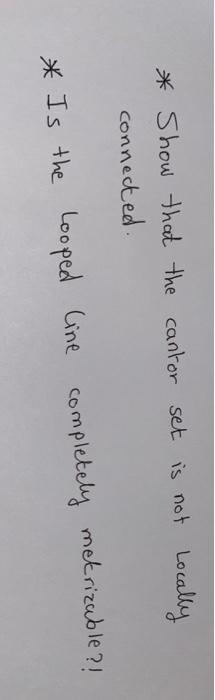 * Show that the cantor set is not Locally
connected.
* Is the Looped Line completely metrizable?!